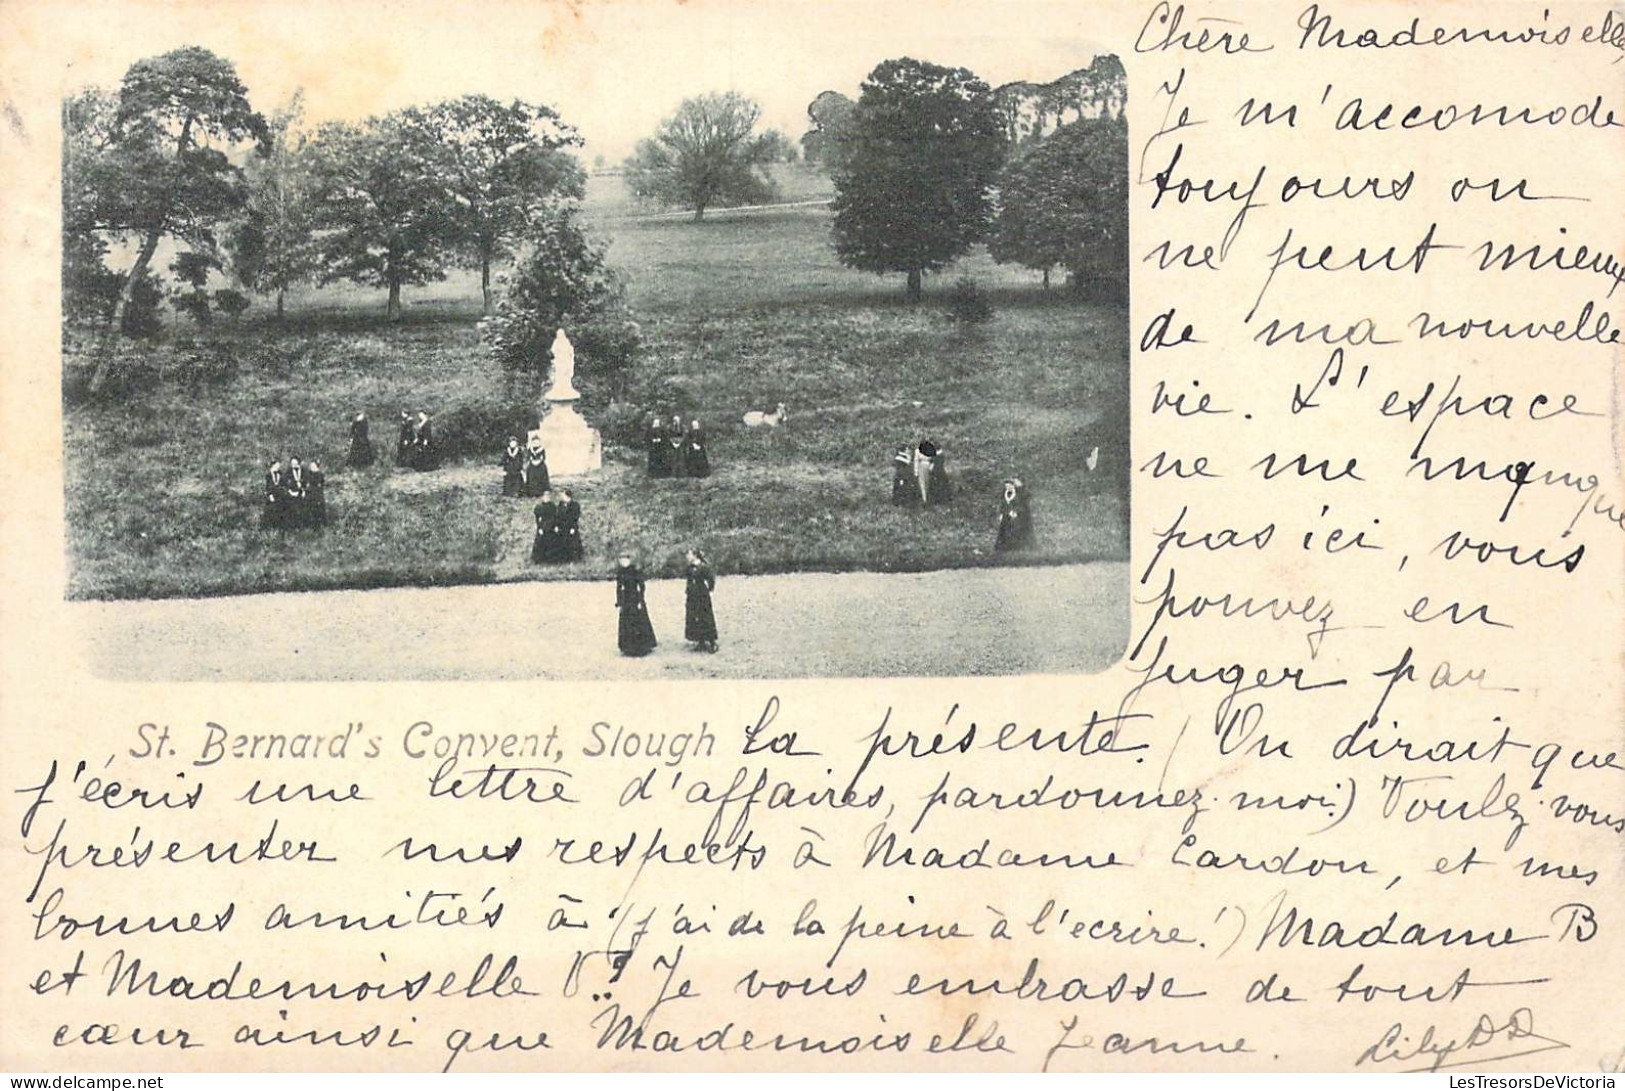 Chère Mademoiselle,
Je m'accomode
toujours on
ne peut mieux
de ma nouvelle
vie. L'espace
ne me manque
pas ici, vous
pouvez en
juger par
St. Bernard's Convent, Slough
la présente. (On dirait que
j'écris une lettre d'affaires, pardonnez-moi!) Voulez-vous
présenter mes respects à Madame Cardon, et mes
bonnes amitiés à (j'ai de la peine à l'ecrire!) Madame B
et Mademoiselle V..? Je vous embrasse de tout
cœur ainsi que Mademoiselle Jeanne. Lily DD
www.LesTresorsDeVictoria.com